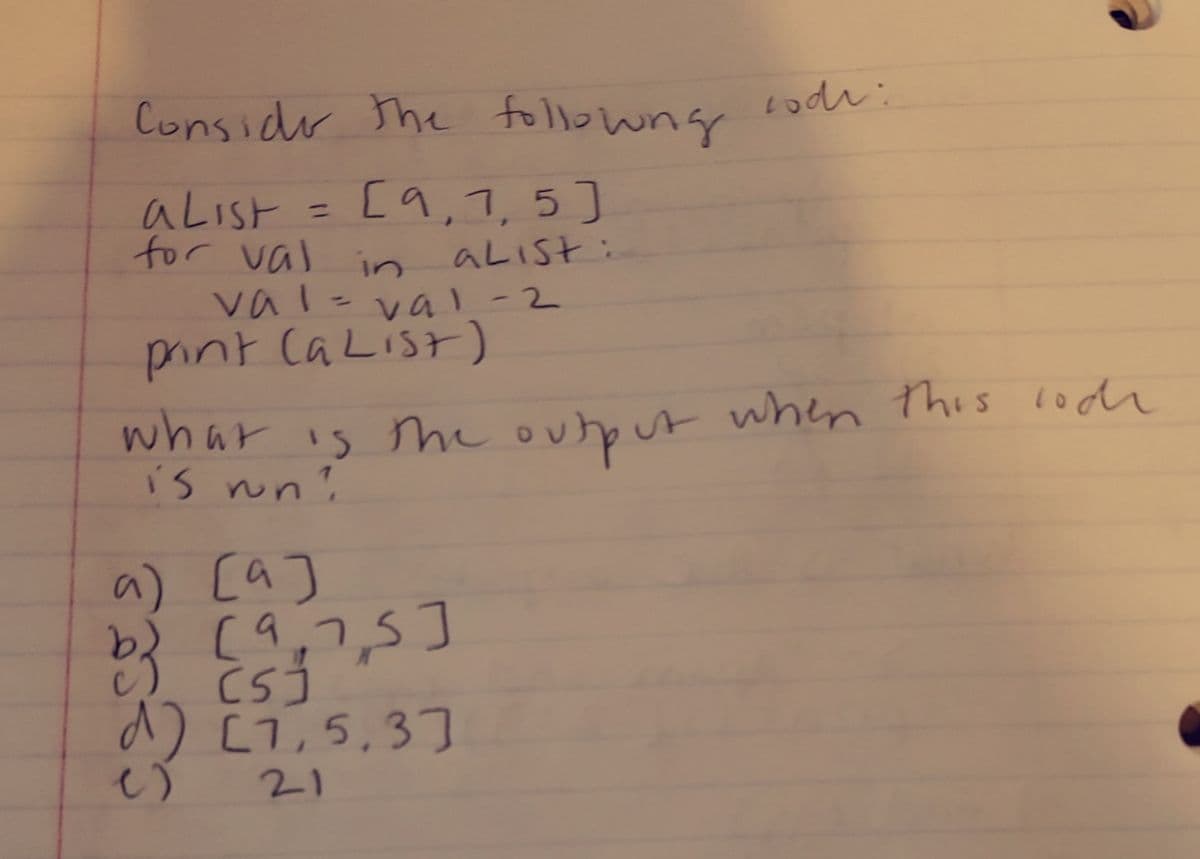 Consider the following code:
aList = [9, 7, 5]
for val in aList:
val = val - 2
print (aList)
what is the output when this code
is run?
a) [9]
b) [9, 7, 5]
c) [5]
d) [7, 5, 3]
e) 21